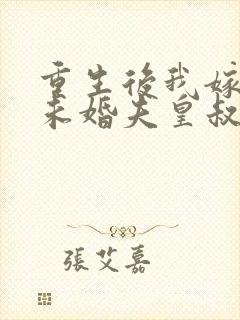 重生後我嫁
未婚夫皇叔
張艾嘉